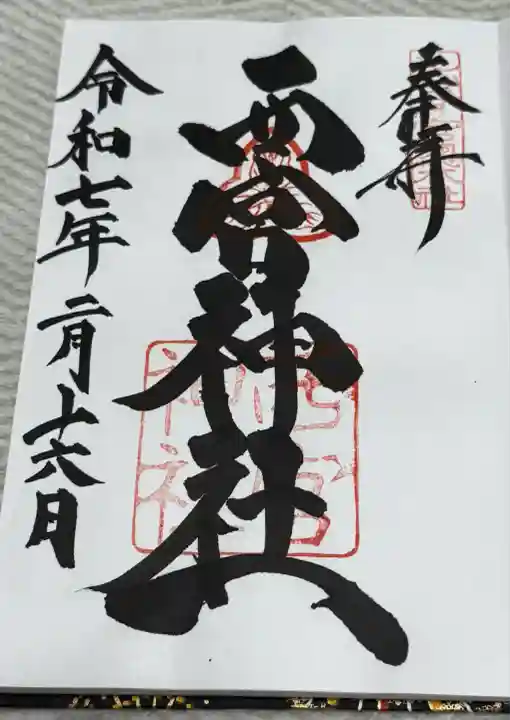 奉拝
西宮神社
令和七年 二月十六日